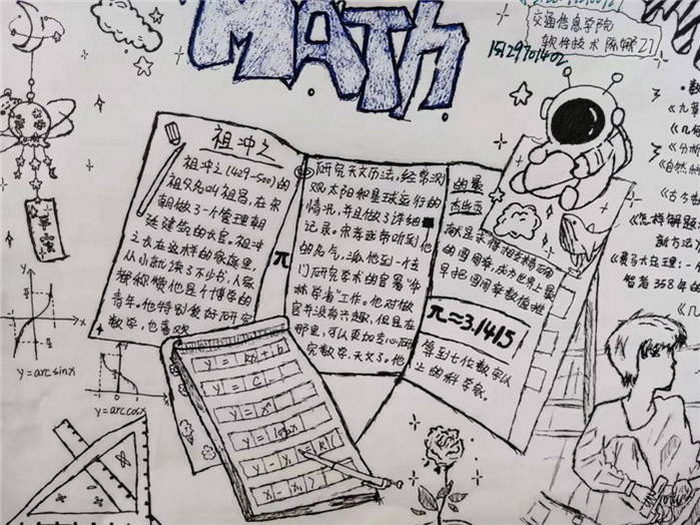 MATH
交通信息学院
软件技术 陈娜 21
15129701402
祖冲之
祖冲之(429-500)的
祖父名叫祖昌,在宋
朝做了一个管理朝
廷建筑的长官。祖冲
之长在这样的家庭里,
从小就读了不少书,人家
都称赞他是个博学的
青年。他特别爱好研究
数学,也喜欢
π
研究天文历法,经常观
观太阳和星球运行的
情况,并且做了详细
记录。宋孝武帝听到他
的名气,派他到一个
门研究学术的官署"华
林学省"工作。他对做
官并没有兴趣,但是在
那里,可以更加专心研
究数学、天文了。他
的最
杰出贡
献是求得相当精确
的圆周率,成为世界上最
早把圆周率数值推
π≈3.1415
算到七位数字以
上的科学家。
y=kx+b
y=c
y=arcsinx
y=arccosx
《九章
《几何
《分析
《自然哲
《古今数
《怎样解题:
新方法
《费马大定理:一
智者358年的